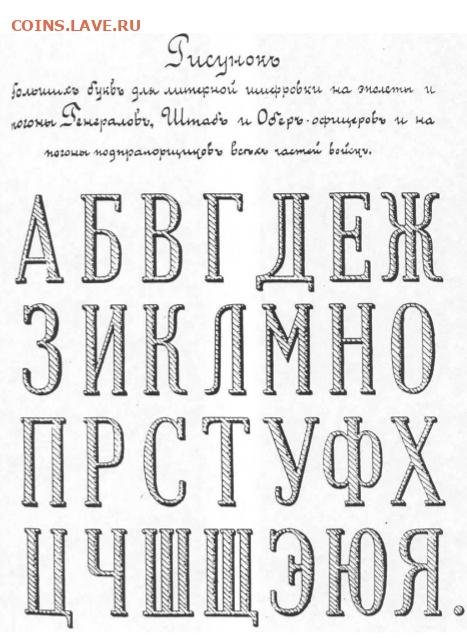 COINS.LAVE.RU
Рисунокъ
большихъ буквъ для литерной шифровки на эполеты и
погоны Генераловъ, Штабъ и Оберъ-офицеровъ и на
погоны подпрапорщиковъ всѣхъ частей войскъ.
А Б В Г Д Е Ж
З И К Л М Н О
П Р С Т У Ф Х
Ц Ч Ш Щ Э Ю Я.